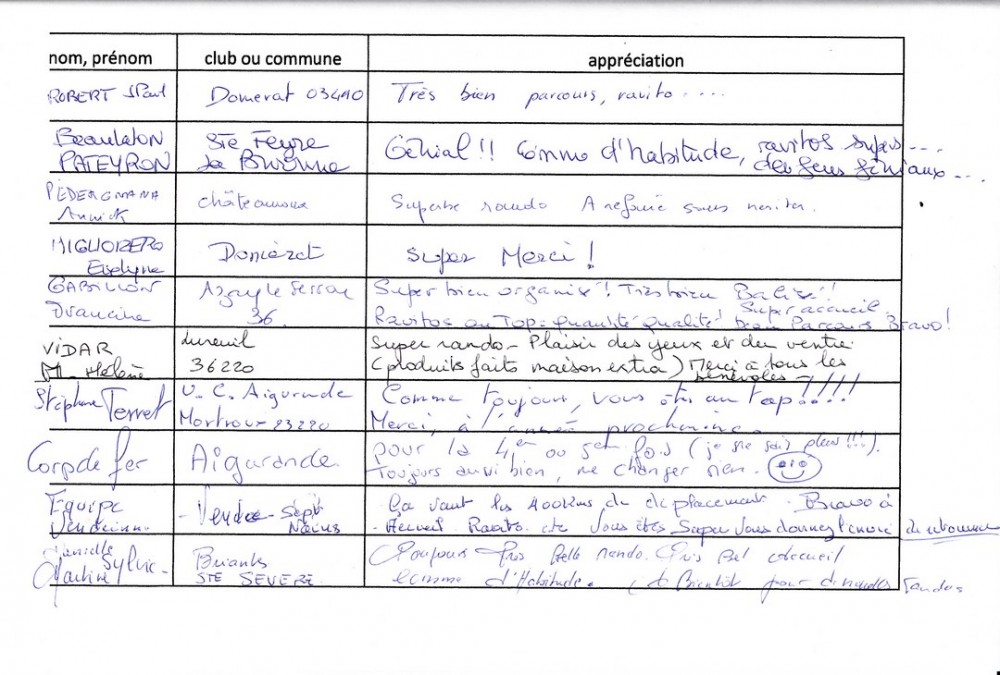 nom, prénom club ou commune appréciation
ROBERT JPaul Domerat 03410 Très bien parcours, ravito ....
Beaulaton Ste Feyre Génial !! Comme d'habitude, ravitos super ...
PATEYRON La Brionne des gens géniaux ...
PEDERGNANA Châteauroux Superbe rando A refaire sans hésiter.
Annick
MIGLIORERO Domérat Super Merci !
Evelyne
GABILLON Azay le Ferron Super bien organisé ! Très bien Balisé !!
Francine 36. Super accueil
Ravitos au Top = quantité qualité ! beau Parcours Bravo !
VIDAR Lureuil Super rando - Plaisir des yeux et du ventre
M. Hélène 36220 (produits faits maison extra) Merci à tous les
bénévoles
Stéphane Terret U.C. Aigurande Comme toujours, vous êtes au top !!!!!
Mortroux 23220 Merci, à l'année prochaine.
Corps de fer Aigurande pour la 4em ou 5em fois (je ne sais plus !!!).
Toujours aussi bien, ne changer rien.
Equipe Vendée Sept ça vaut les 400kms de déplacement. Bravo à
Vendéenne Accueil Ravito etc Vous êtes Super Vous donnez l'envie de retourner
Danielle Sylvie Briantes Toujours très belle rando. Très Bel Accueil
Martine STE SEVERE Comme d'Habitude. A Bientôt pour d'nouvelles randos